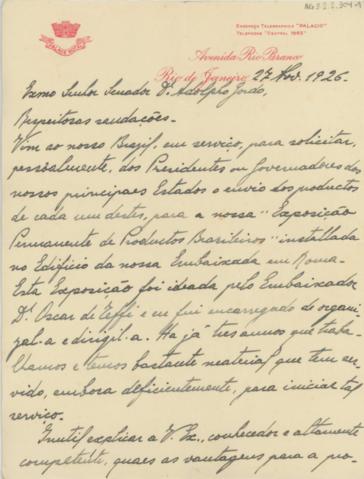 ENDEREÇO TELEGRAPHICO "PALACIO"
TELEPHONE "CENTRAL 1983"
PALACE HOTEL
Avenida Rio Branco
Rio de Janeiro 27 Nov. 1926.
Exmo Senhor Senador Dr. Adolpho Gordo.
Respeitosas saudações.
Vim ao nosso Brazil, em serviço, para solicitar,
pessoalmente, dos Presidentes ou Governadores dos
nossos principaes Estados o envio dos productos
de cada um destes, para a nossa "Exposição
Permanente de Productos Brasileiros" installada
no Edificio da nossa Embaixada em Roma.
Esta Exposição foi ideada pelo Embaixador
Dr. Oscar de Teffé e eu fui encarregado de organi-
zal-a e dirigil-a. Ha já tres annos que traba-
lhamos e temos bastante material que tem ser-
vido, embora deficientemente, para iniciar tal
serviço.
Inutil explicar a V. Ex., conhecedor e altamente
competente, quaes as vantagens para a pro-